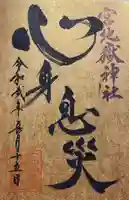 宮地嶽神社
心身
息災
令和弐年五月十五日